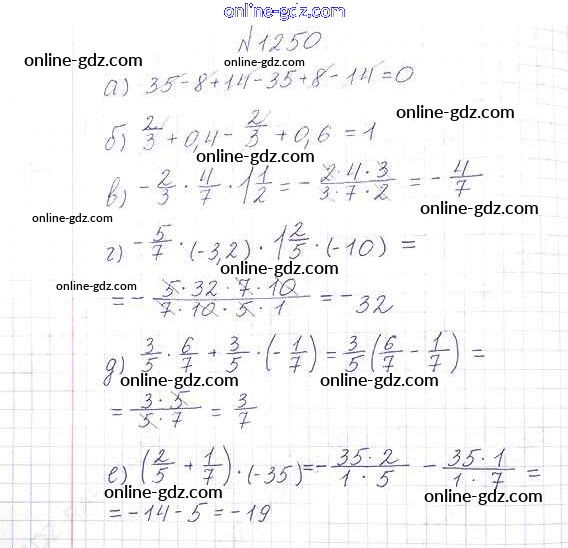 online-gdz.com
№1250
online-gdz.com
online-gdz.com
а) 35-8+14-35+8-14=0
online-gdz.com
б) 2/3 + 0,4 - 2/3 + 0,6 = 1
online-gdz.com
в) - 2/3 · 4/7 · 1 1/2 = - 2·4·3/3·7·2 = - 4/7
online-gdz.com
online-gdz.com
г) - 5/7 · (-3,2) · 1 2/5 · (-10) =
online-gdz.com
online-gdz.com
= - 5·32·7·10/7·10·5·1 = - 32
online-gdz.com
д) 3/5 · 6/7 + 3/5 · (- 1/7) = 3/5 (6/7 - 1/7) =
online-gdz.com
online-gdz.com
= 3·5/5·7 = 3/7
online-gdz.com
е) (2/5 + 1/7) · (-35) = - 35·2/1·5 - 35·1/1·7 =
online-gdz.com
online-gdz.com
= -14-5 = -19